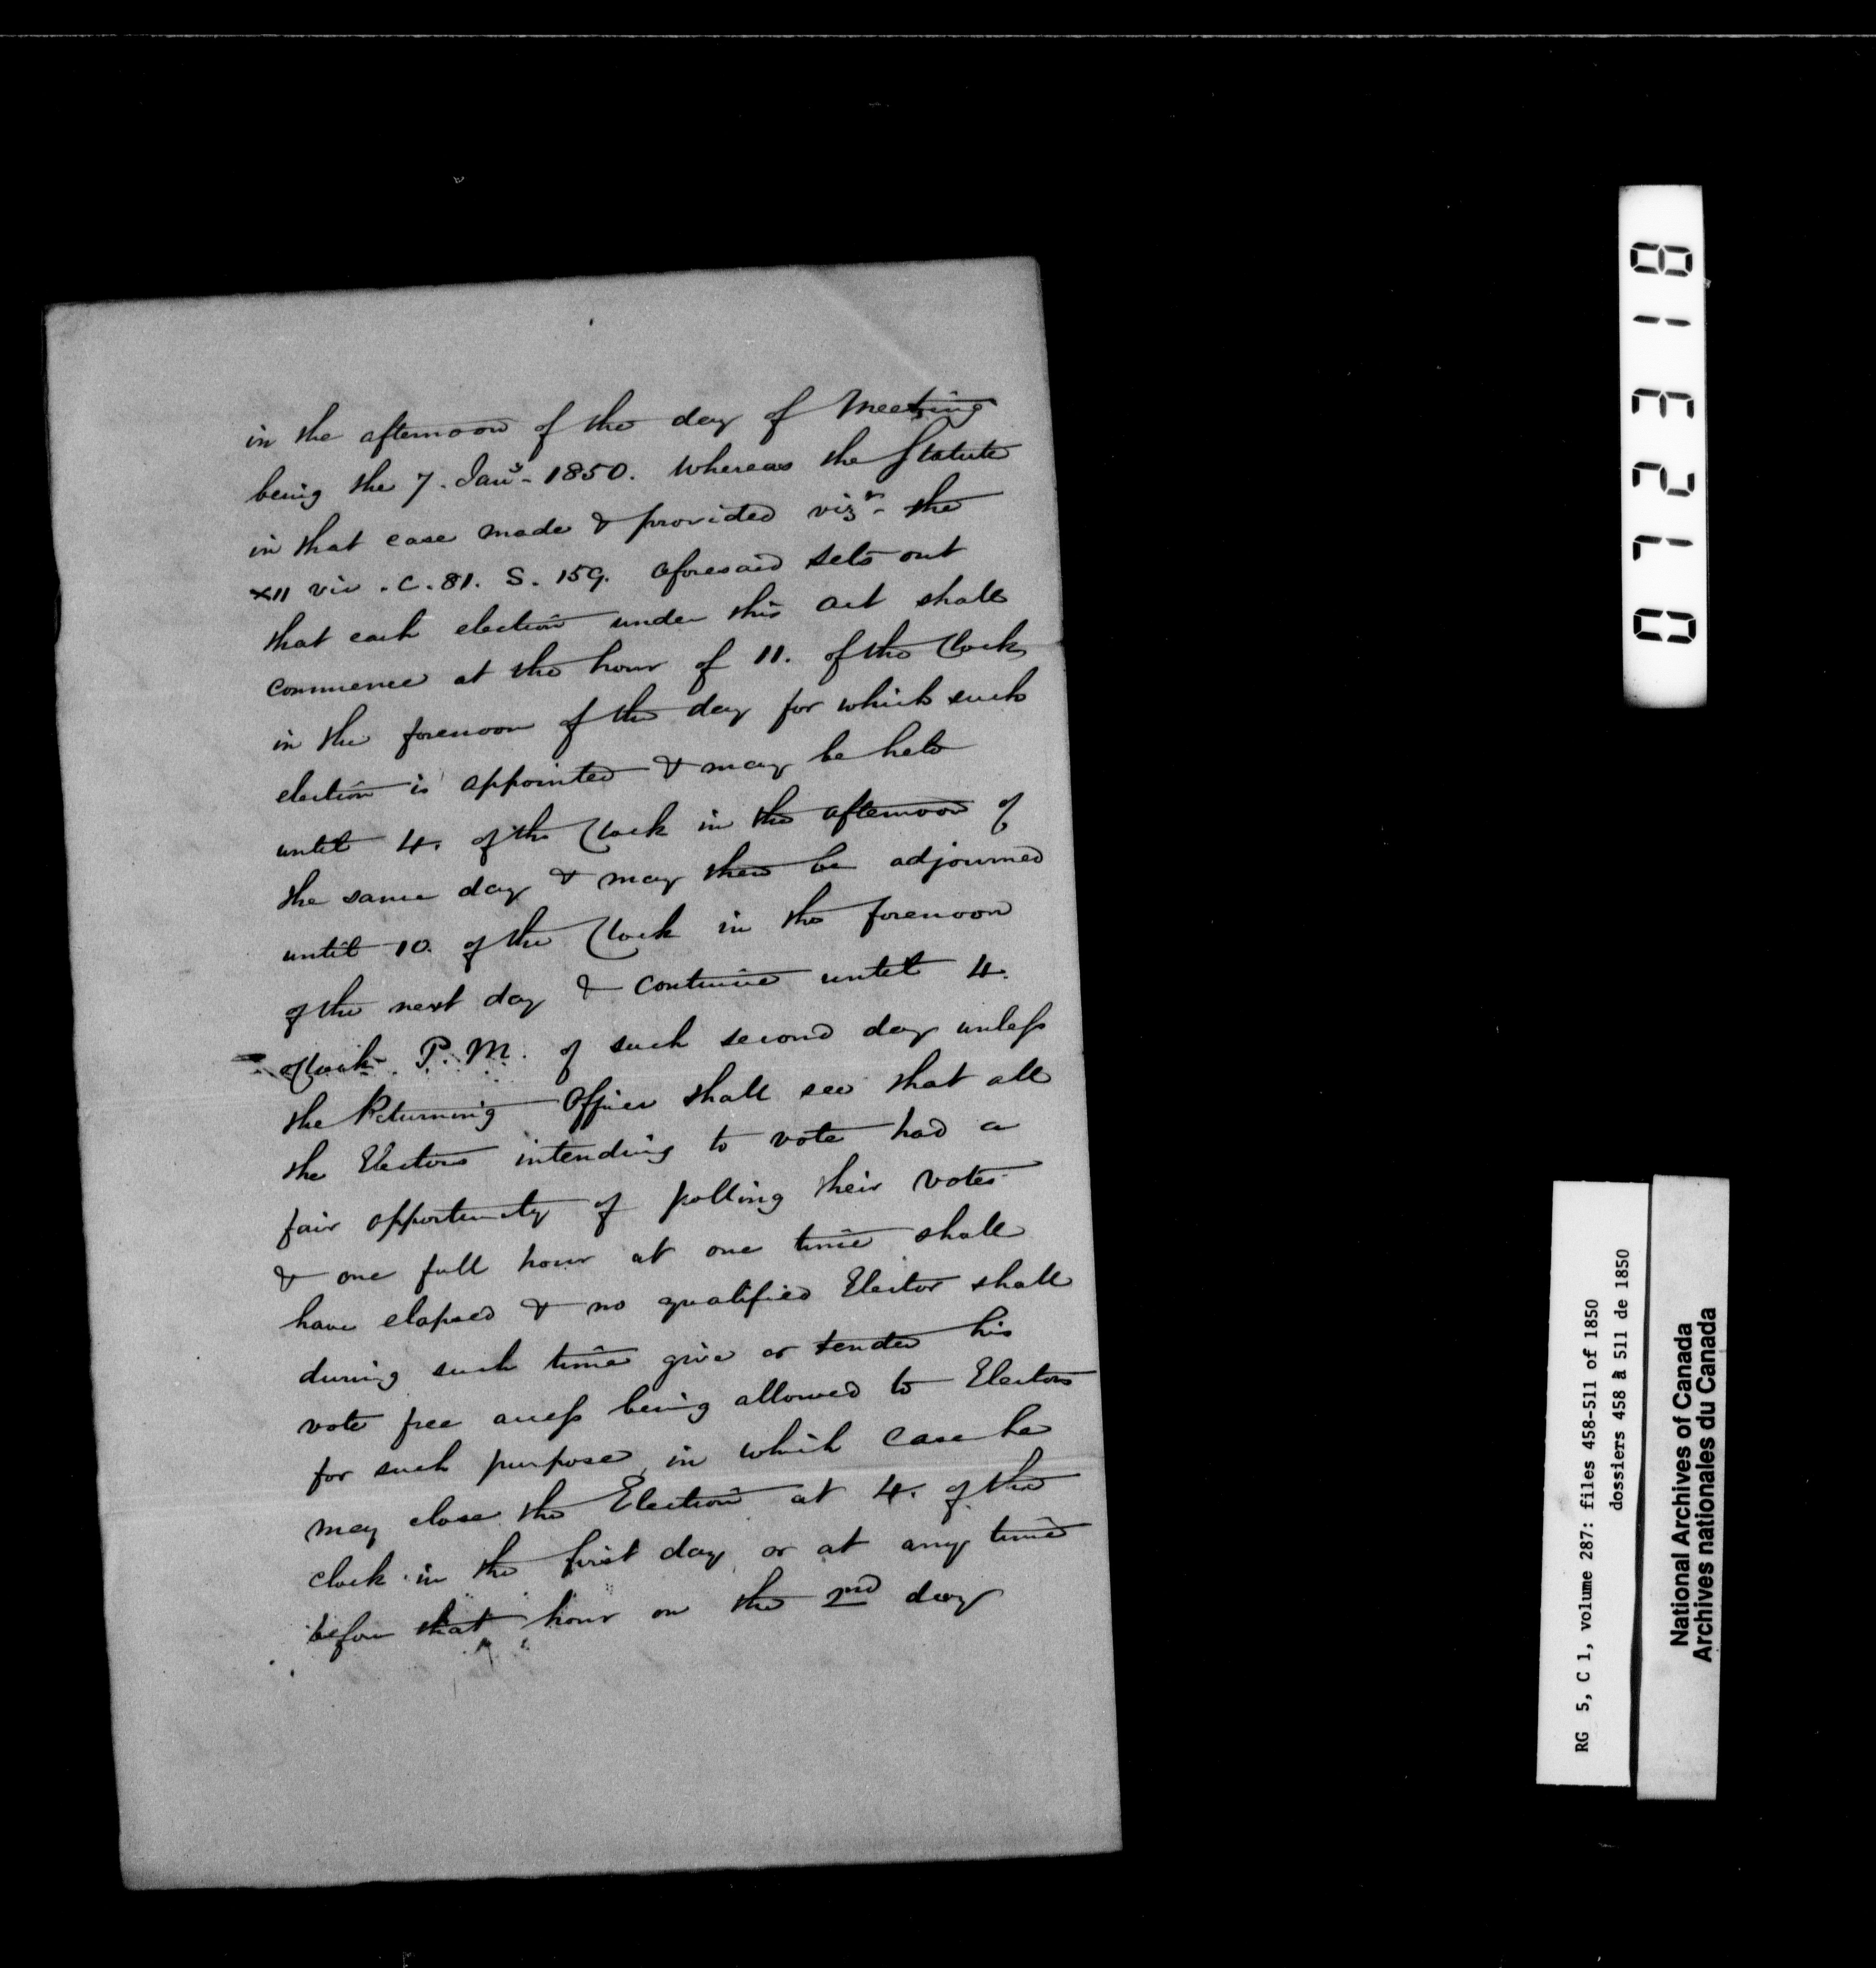 in the afternoon of the day of Meeting
being the 7. Jany. 1850. Whereas the Statute
in that case made & provided vizt. the
XII vic. C. 81. S. 159. aforesaid sets out
that each election under this act shall
commence at the hour of 11. of the Clock
in the forenoon of the day for which such
election is appointed & may be held
until 4. of the Clock in the afternoon of
the same day & may then be adjourned
until 10. of the Clock in the forenoon
of the next day & continue until 4.
oClock. P.M. of such second day unless
the Returning Officer shall see that all
the Electors intending to vote had a
fair opportunity of polling their votes
& one full hour at one time shall
have elapsed & no qualified Elector shall
during such time give or tender his
vote free access being allowed to Electors
for such purpose, in which case he
may close the Election at 4. of the
clock in the first day, or at any time
before that hour on the 2nd day
072318
RG 5, C 1, volume 287: files 458-511 of 1850
dossiers 458 à 511 de 1850
National Archives of Canada
Archives nationales du Canada